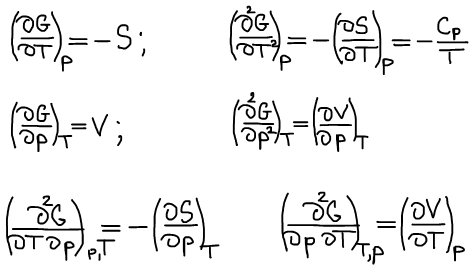 (∂G/∂T)_P = −S ; (∂²G/∂T²)_P = −(∂S/∂T)_P = −C_P/T
(∂G/∂P)_T = V ; (∂²G/∂P²)_T = (∂V/∂P)_T
(∂²G/∂T∂P)_P,T = −(∂S/∂P)_T (∂²G/∂P∂T)_T,P = (∂V/∂T)_P